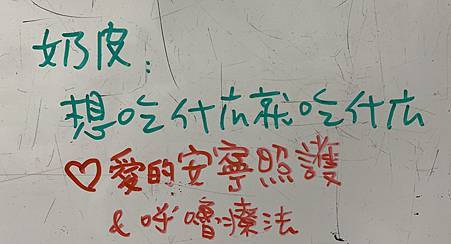 奶皮：
想吃什広就吃什広
♡愛的安寧照護
& 呼嚕療法